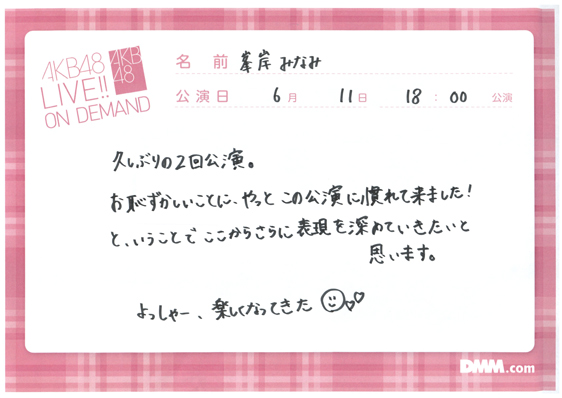 AKB48
LIVE!!
ON DEMAND
AKB
48
名 前 峯岸 みなみ
公演日 6月 11日 18:00 公演
久しぶりの2回公演。
お恥ずかしいことに、やっとこの公演に慣れて来ました!
と、いうことでここからさらに表現を深めていきたいと
思います。
よっしゃー、楽しくなってきた
DMM.com